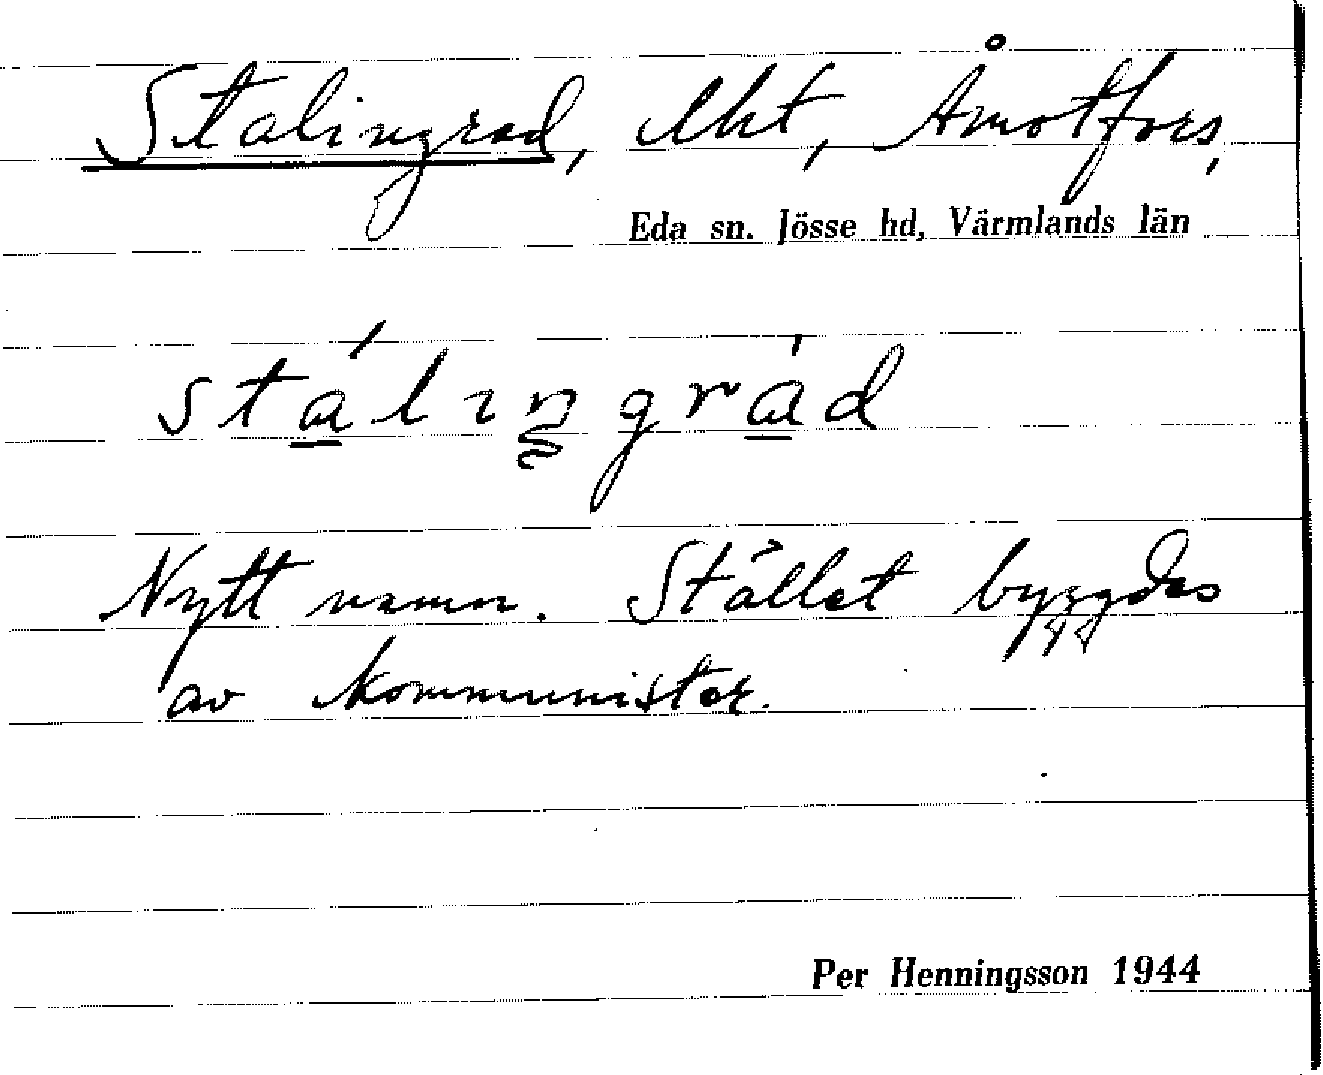 Stalingrad, lht, Åmotfors,
Eda sn. Jösse hd, Värmlands län
stálıngrád
Nytt namn. Stället byggdes
av kommunister.
Per Henningsson 1944